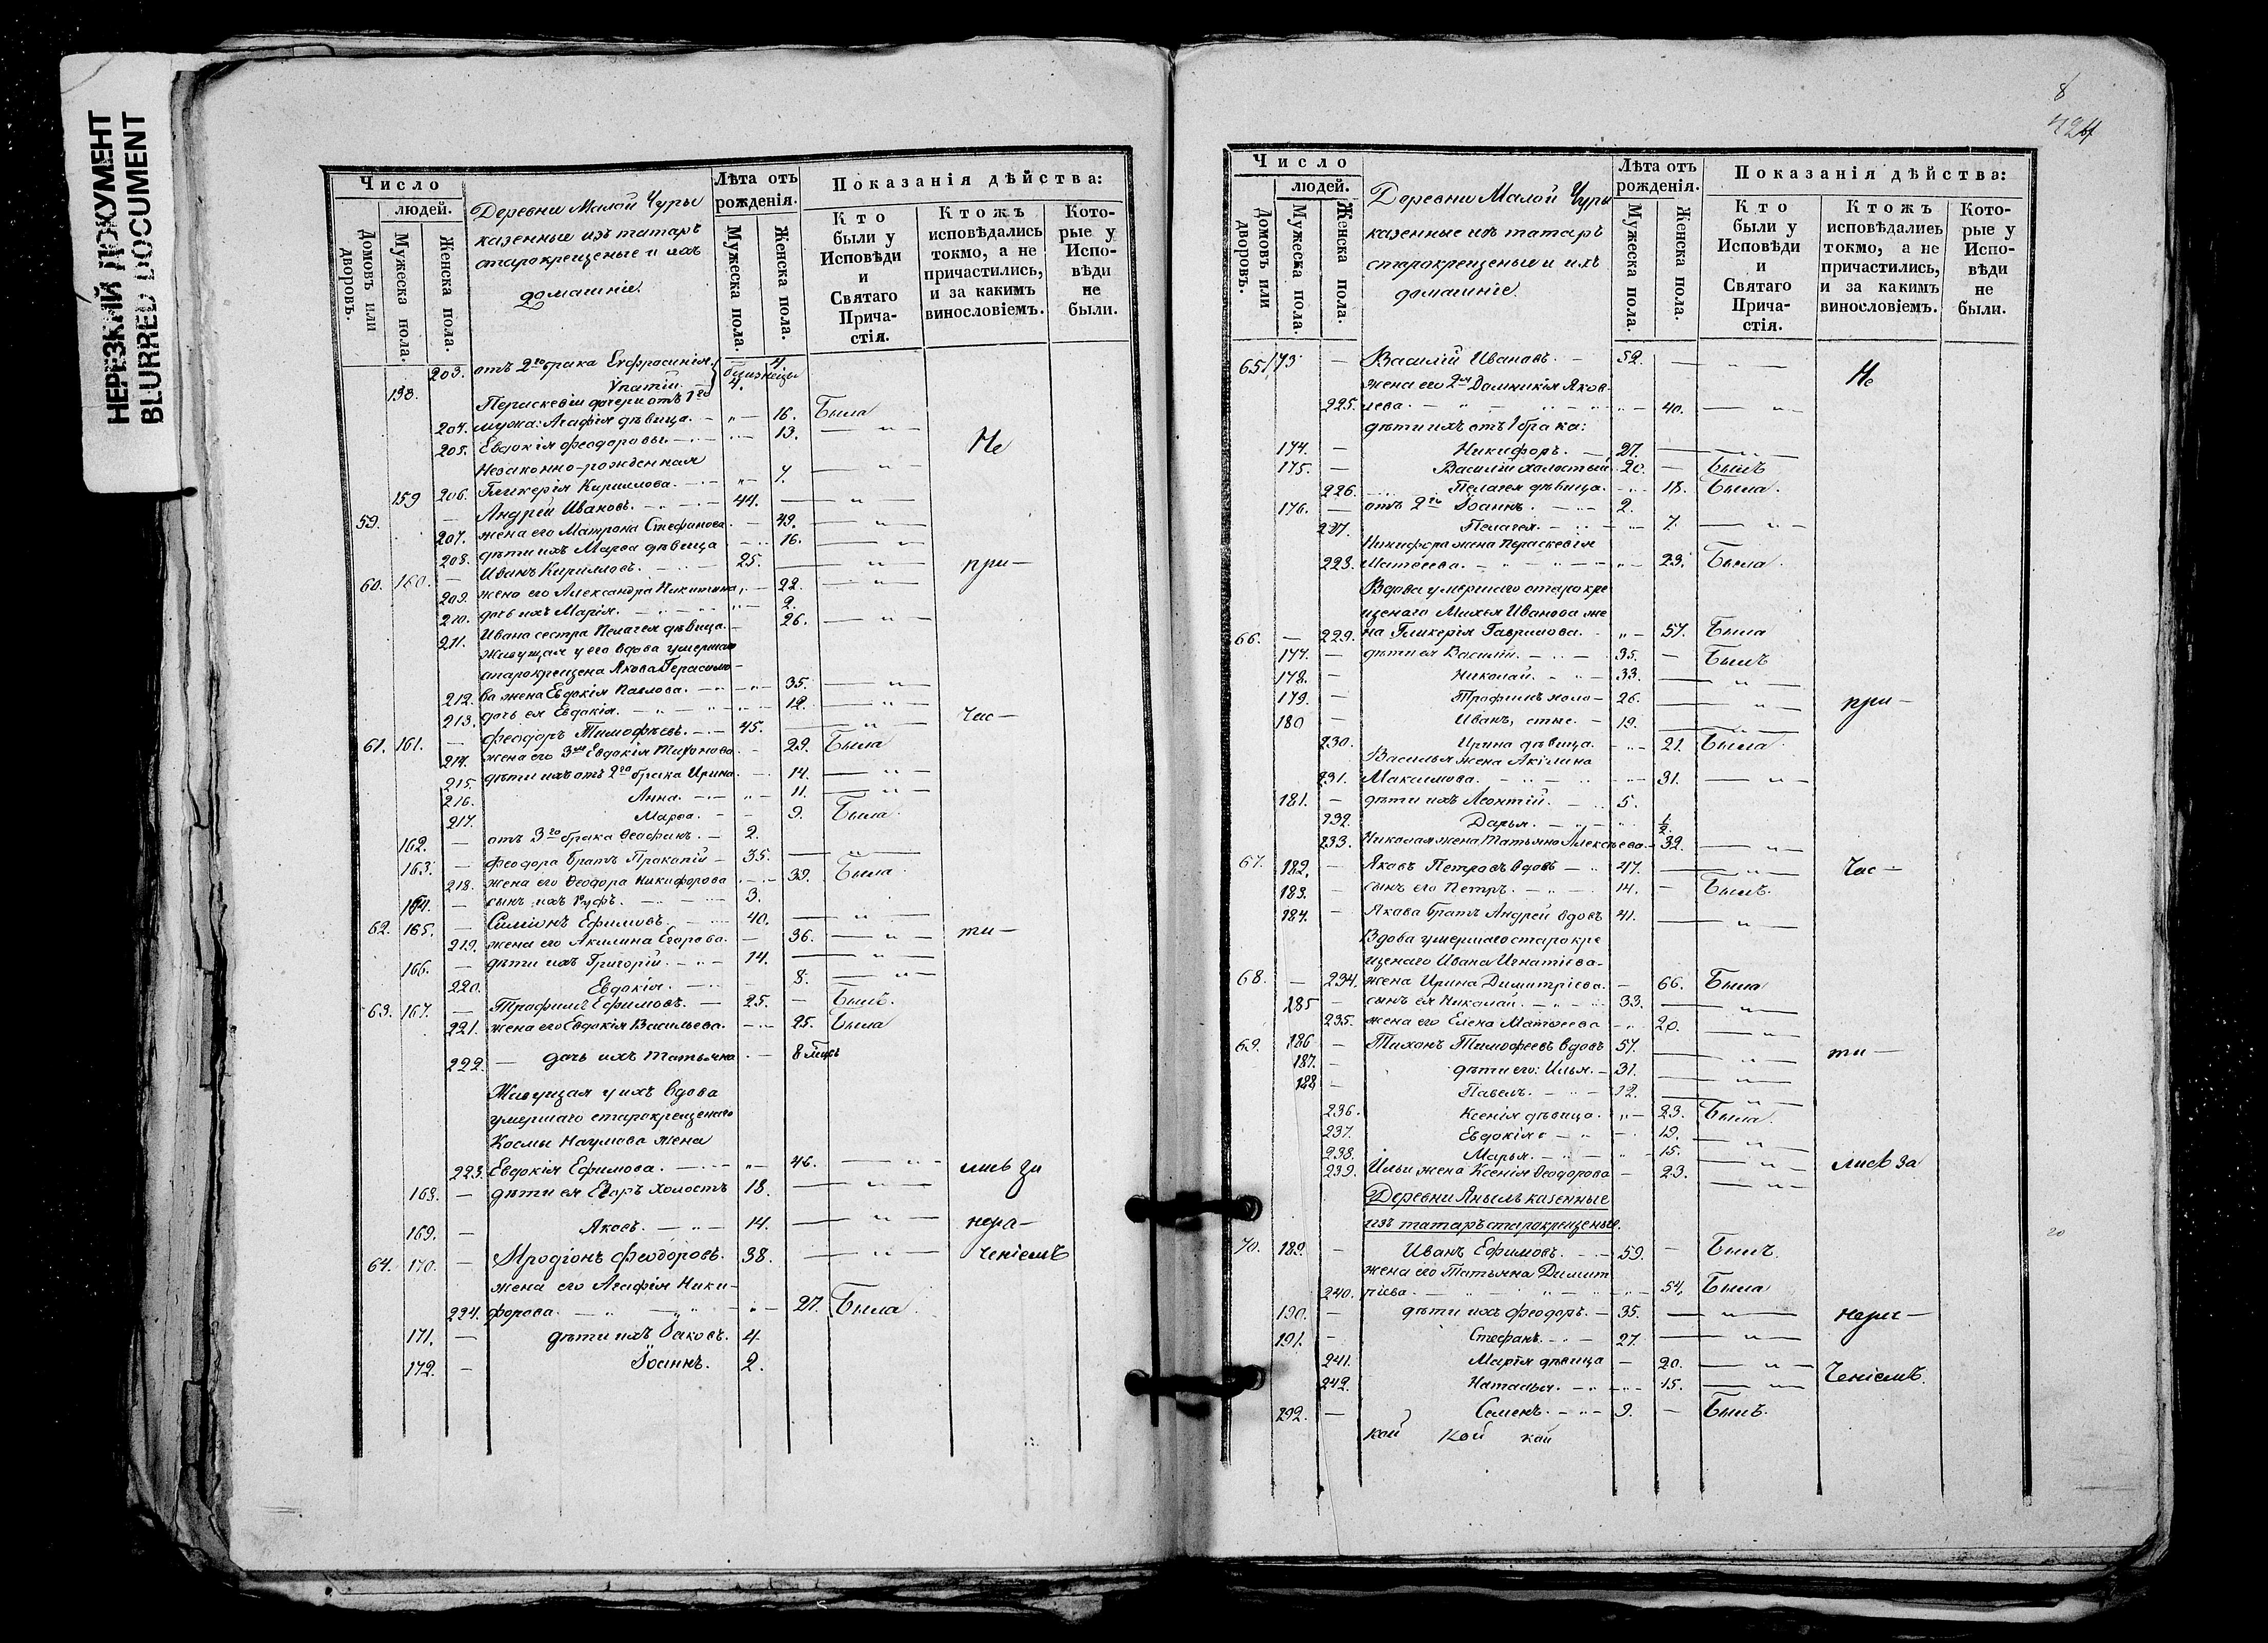 НЕРЕЗКИЙ ДОКУМЕНТ
BLURRED DOCUMENT
Число
людей.
Домовъ или дворовъ.
Мужеска пола.
Женска пола.
Деревни Малой Чуры
казенные изъ татаръ
старокрещеные и ихъ
домашніе.
Лѣта отъ рожденія.
Мужеска пола.
Женска пола.
Показанія дѣйства:
Кто были у Исповѣди и Святаго Причастія.
Ктожъ исповѣдались токмо, а не причастились, и за какимъ винословіемъ.
Которые у Исповѣди не были.
203. отъ 2го брака Евфросинія. 4.
близнецы
158. Упатій. 4.
Параскевіи дочери отъ 1го
204. мужа: Агафія дѣвица. — " — 16. Была
205. Евдокія Феодоровы. — 13. — " —
Не
Незаконно-рожденная
206. Гликерія Кириллова. — " — 7. — " —
59. 159 — Андрей Ивановъ. — 44. — " —
207. жена его Матрона Стефанова. — 49. — " —
208. дѣти ихъ Марѳа дѣвица — 16. — " —
60. 160. — Иванъ Кирилловъ. — 25. — " —
при—
209. жена его Александра Никитина. — 22. — " —
210. дочь ихъ Марія. — " — 2.
211. Ивана сестра Пелагея дѣвица. — 26. — " —
Живущая у его вдова умершаго
старокрещена Якова Герасимо—
212. ва жена Евдокія Павлова. — " — 35. — " —
213. дочь ея Евдокія. — " — 12. — " —
61. 161. — Феодоръ Тимофѣевъ. — 45. — " —
час—
214. жена его 3мъ Евдокія Тихонова. — 29. Была
215. дѣти ихъ отъ 2го брака Ирина. — 14. — " —
216. Анна. — " — 11. — " —
217. Марѳа. — 9. Была.
162. — отъ 3го брака Ѳеофанъ. — 2.
163. — Феодора братъ Прокопій — 35. — " —
218. жена его Ѳеодора Никифорова — 39. Была.
164. — сынъ ихъ Руфъ. — 3.
62. 165. — Симіонъ Ефимовъ. — 40. — " —
219. жена его Акилина Егорова. — 36. — " —
ти—
166. — дѣти ихъ Григорій. — " — 14. — " —
220. Евдокія. — 8. — " —
63. 167. — Трофимъ Ефимовъ. — 25. — Былъ.
221. жена его Евдокія Васильева. — 25. Была
222. — дочь ихъ Татьяна. — 8 мцъ
Живущая у ихъ вдова
умершаго старокрещенаго
Космы Наумова жена
223. Евдокія Ефимова. — " — 46. — " —
лись за
168. — дѣти ея Егоръ холостъ 18. — " —
169. — Яковъ. — " — 14. — " —
нера—
64. 170. — Иродіонъ Феодоровъ. 38. — " —
ченіемъ
жена его Агафія Ники—
224. форова. — " — 27. Была.
171. — дѣти ихъ Іаковъ. 4.
172. — Іоаннъ. 2.
8
424
Число
людей.
Домовъ или дворовъ.
Мужеска пола.
Женска пола.
Деревни Малой Чуры
казенные изъ татаръ
старокрещеные и ихъ
домашніе.
Лѣта отъ рожденія.
Мужеска пола.
Женска пола.
Показанія дѣйства:
Кто были у Исповѣди и Святаго Причастія.
Ктожъ исповѣдались токмо, а не причастились, и за какимъ винословіемъ.
Которые у Исповѣди не были.
65. 173 — Василій Ивановъ. — 52. — " —
Не
жена его 2мъ Домникія Яков—
225. лева. — " — 40. — " —
дѣти ихъ отъ 1 брака:
174. — Никифоръ. — 27. — " —
175. — Василій холостый. 20. — Былъ
226. Пелагея дѣвица. — 18. Была.
176. — отъ 2го Іоаннъ. — 2.
227. Пелагея. — 7. — " —
Никифора жена Параскевія
228. Матѳеева. — " — 23. Была.
Вдова умершаго старокре
щенаго Михея Иванова же
66. — 229. на Гликерія Гаврилова. — " — 57. Была
177. — дѣти ея Василій. — 35. — Былъ
178. — Николай. — 33. — " —
179. — Трофимъ холо— 26. — " —
при—
180 — Иванъ, стые. — 19. — " —
230. Ирина дѣвица. — 21. Была.
Василья жена Акілина
231. Максимова. — " — 31. — " —
181. — дѣти ихъ Леонтій. — 5.
232. Дарья. — ½.
233. Николая жена Татьяна Алексѣева. — 32. — " —
67. 182. — Яковъ Петровъ вдовъ — 47. — " —
час—
183. — сынъ его Петръ. — 14. — Былъ.
184. — Якова братъ Андрей вдовъ 41. — " —
Вдова умершаго старокре
щенаго Ивана Игнатіева—
68. — 234. жена Ирина Димитріева. — 66. Была
185 — сынъ ея Николай. — 33. — " —
235. жена его Елена Матѳеева — 20. — " —
69. 186 — Тихонъ Тимофеевъ вдовъ 57. — " —
ти—
187. — дѣти его: Илья. — 31. — " —
188 — Павелъ. — 12. — " —
236. Ксенія дѣвица. — " — 23. Была.
237. Евдокія — 19. — " —
238. Марья. — 15. — " —
239. Ильи жена Ксенія Ѳеодорова — 23. — " —
лисѣ за
Деревни Янылъ казенные
изъ татаръ старокрещеные.
70. 189. — Иванъ Ефимовъ. — 59. — Былъ.
жена его Татьяна Димит
240. ріева. — " — 54. Была
190. — дѣти ихъ Феодоръ. — 35. — " —
нера—
191. — Стефанъ. — 27. — " —
241. Марія дѣвица — 20. — " —
242. Наталья. — 15. — " —
ченіемъ.
192. — Семенъ. — 9. — Былъ.
кой кой кой
20